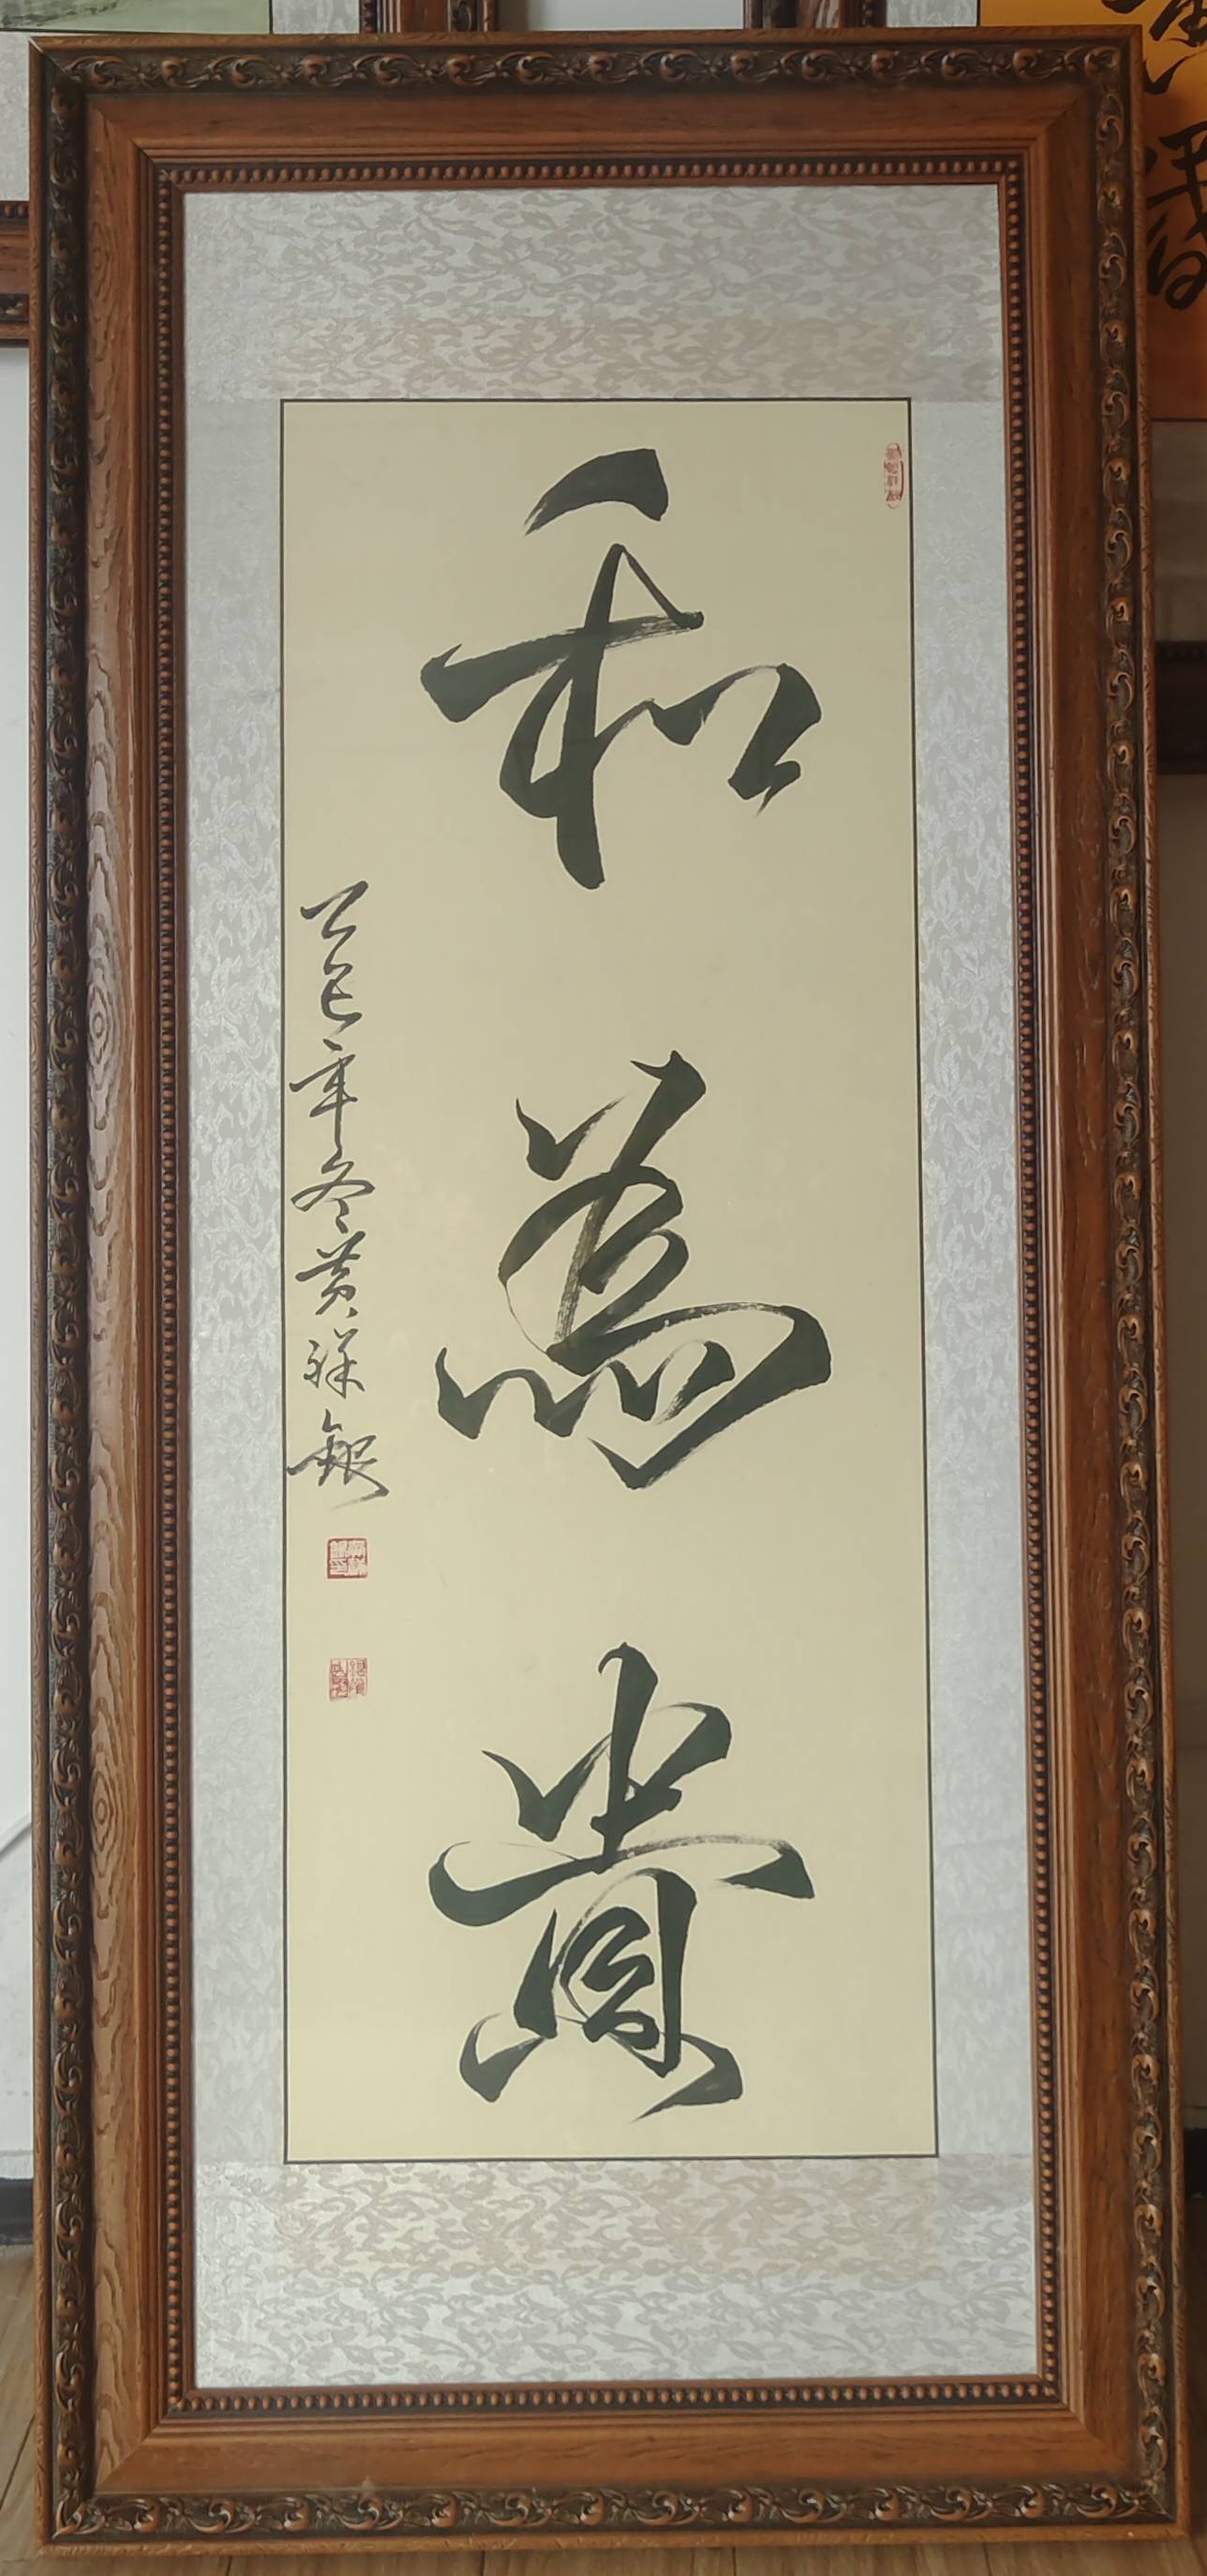 和為貴
乙巳年冬黄祥銀